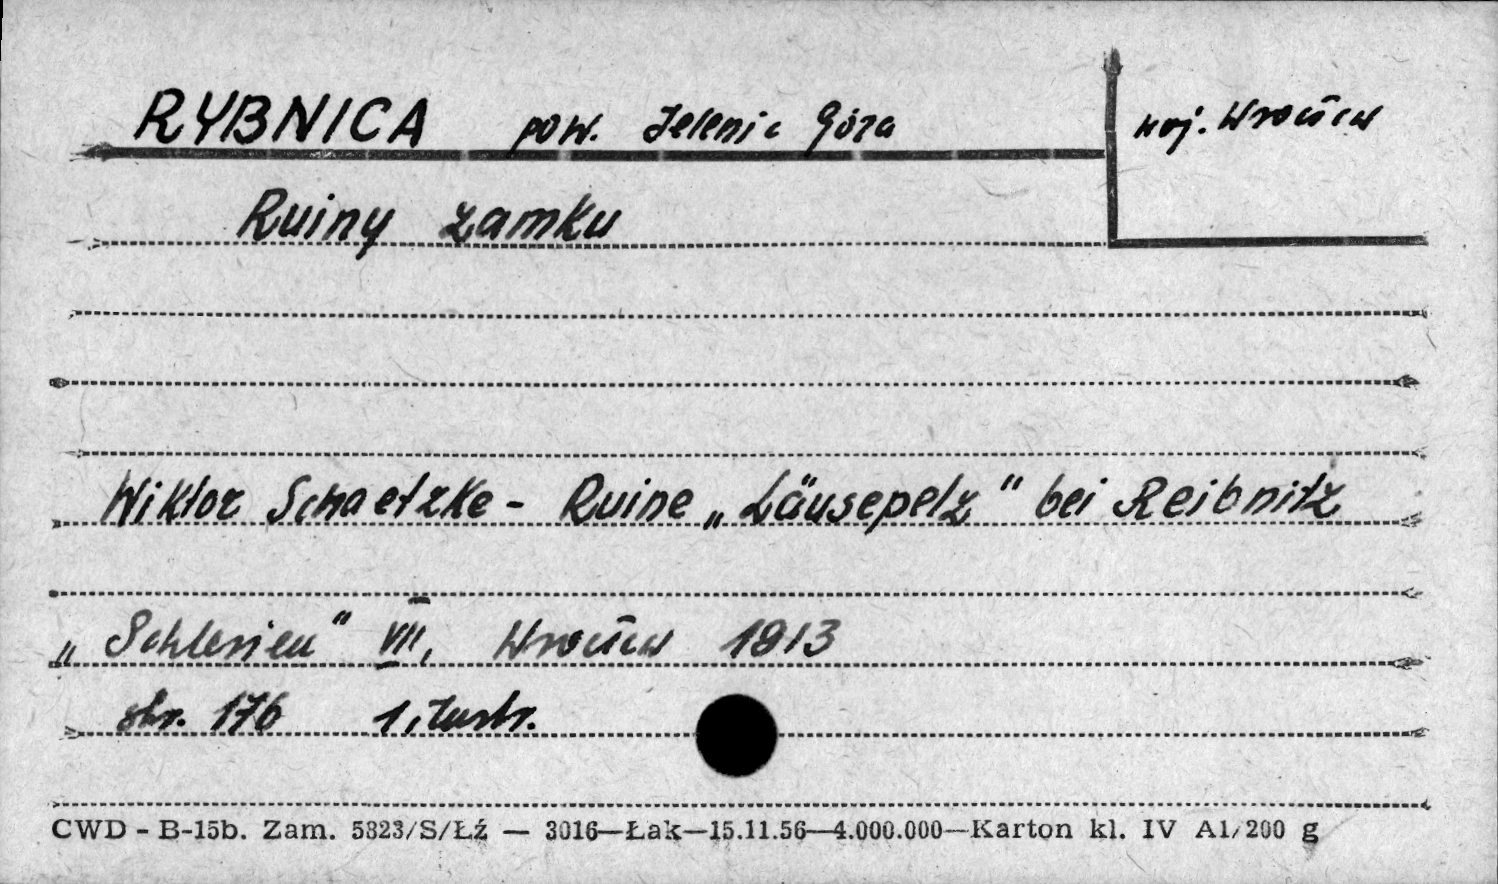 RYBNICA pow. Jelenia Góra
woj. Wrocław
Ruiny zamku
Wiktor Schaetzke - Ruine „Läusepelz" bei Reibnitz
„Schlesien" VII, Wrocław 1913
str. 176 1 ilustr.
CWD - B-15b. Zam. 5823/S/Łź — 3016—Łak—15.11.56—4.000.000—Karton kl. IV A1/200 g